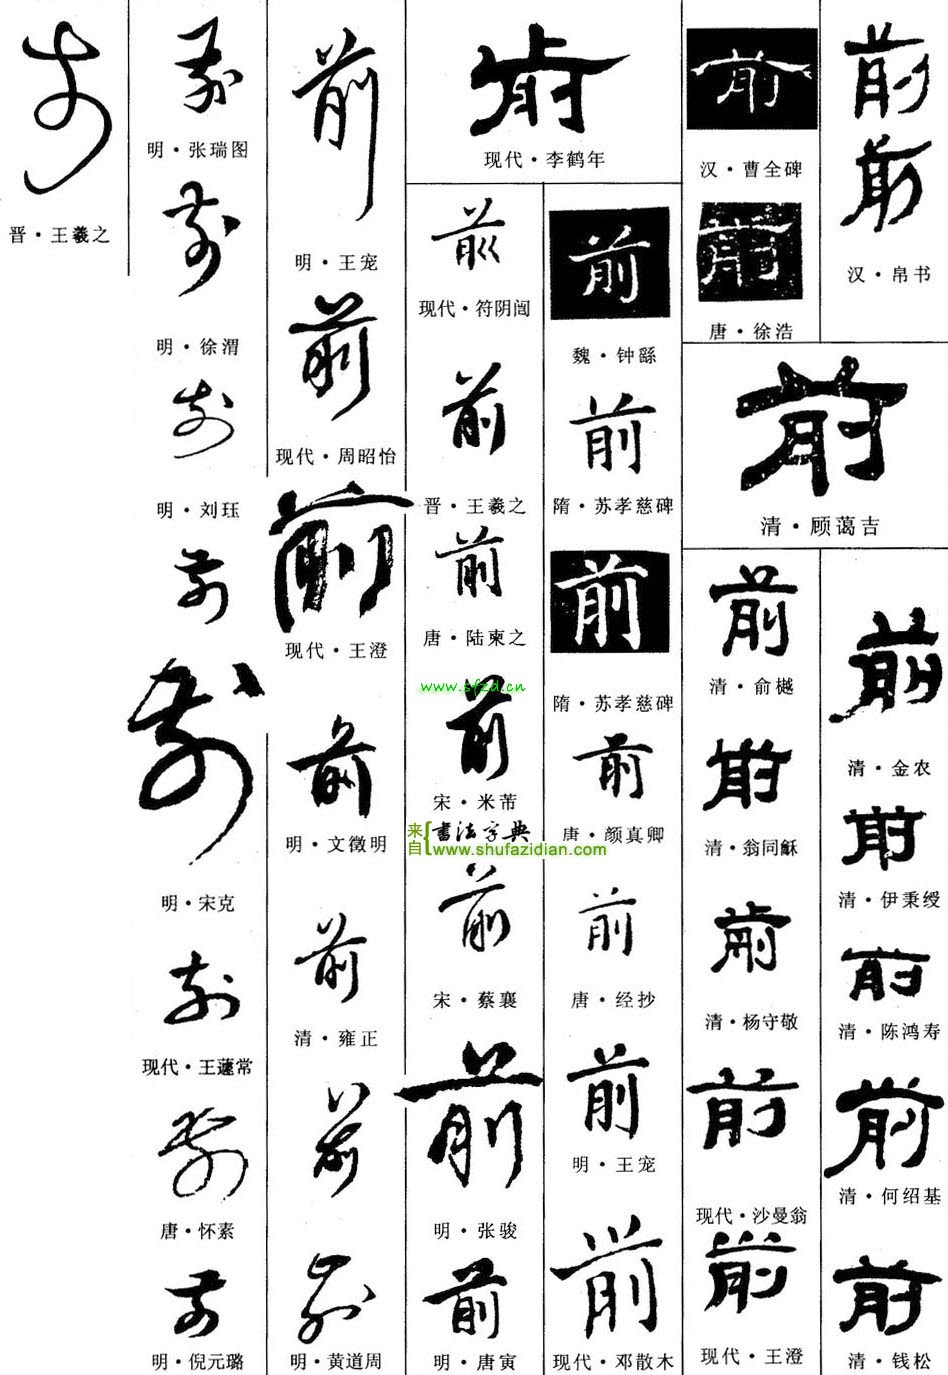 前
晋·王羲之
前
明·张瑞图
前
明·徐渭
前
明·刘珏
前
前
明·宋克
前
现代·王蘧常
前
唐·怀素
前
明·倪元璐
前
明·王宠
前
现代·周昭怡
前
现代·王澄
前
明·文徵明
前
清·雍正
前
前
明·黄道周
前
现代·李鹤年
前
现代·符阴闿
前
晋·王羲之
前
唐·陆柬之
www.sfzd.cn
前
宋·米芾
来自{书法字典
www.shufazidian.com
前
宋·蔡襄
前
明·张骏
前
明·唐寅
前
魏·钟繇
前
隋·苏孝慈碑
前
隋·苏孝慈碑
前
唐·颜真卿
前
唐·经抄
前
明·王宠
前
现代·邓散木
前
汉·曹全碑
前
唐·徐浩
前
前
汉·帛书
前
清·顾蔼吉
前
清·俞樾
前
清·翁同龢
前
清·杨守敬
前
现代·沙曼翁
前
现代·王澄
前
清·金农
前
清·伊秉绶
前
清·陈鸿寿
前
清·何绍基
前
清·钱松